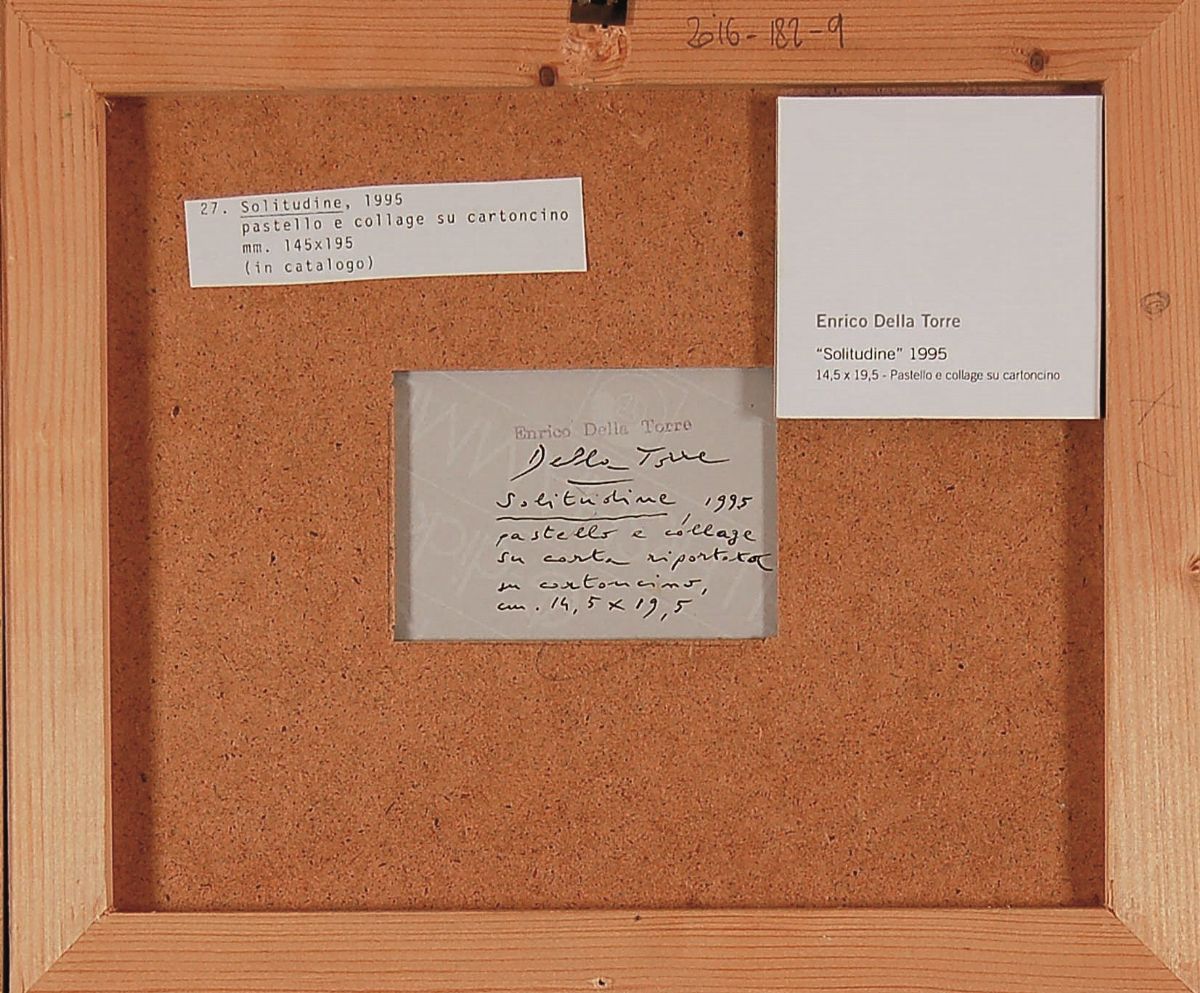 2016-182-9
27. Solitudine, 1995
pastello e collage su cartoncino
mm. 145x195
(in catalogo)
Enrico Della Torre
“Solitudine” 1995
14,5 x 19,5 - Pastello e collage su cartoncino
Enrico Della Torre
Della Torre
Solitudine, 1995
pastello e collage
su carta riportata
su cartoncino,
cm. 14,5 x 19,5